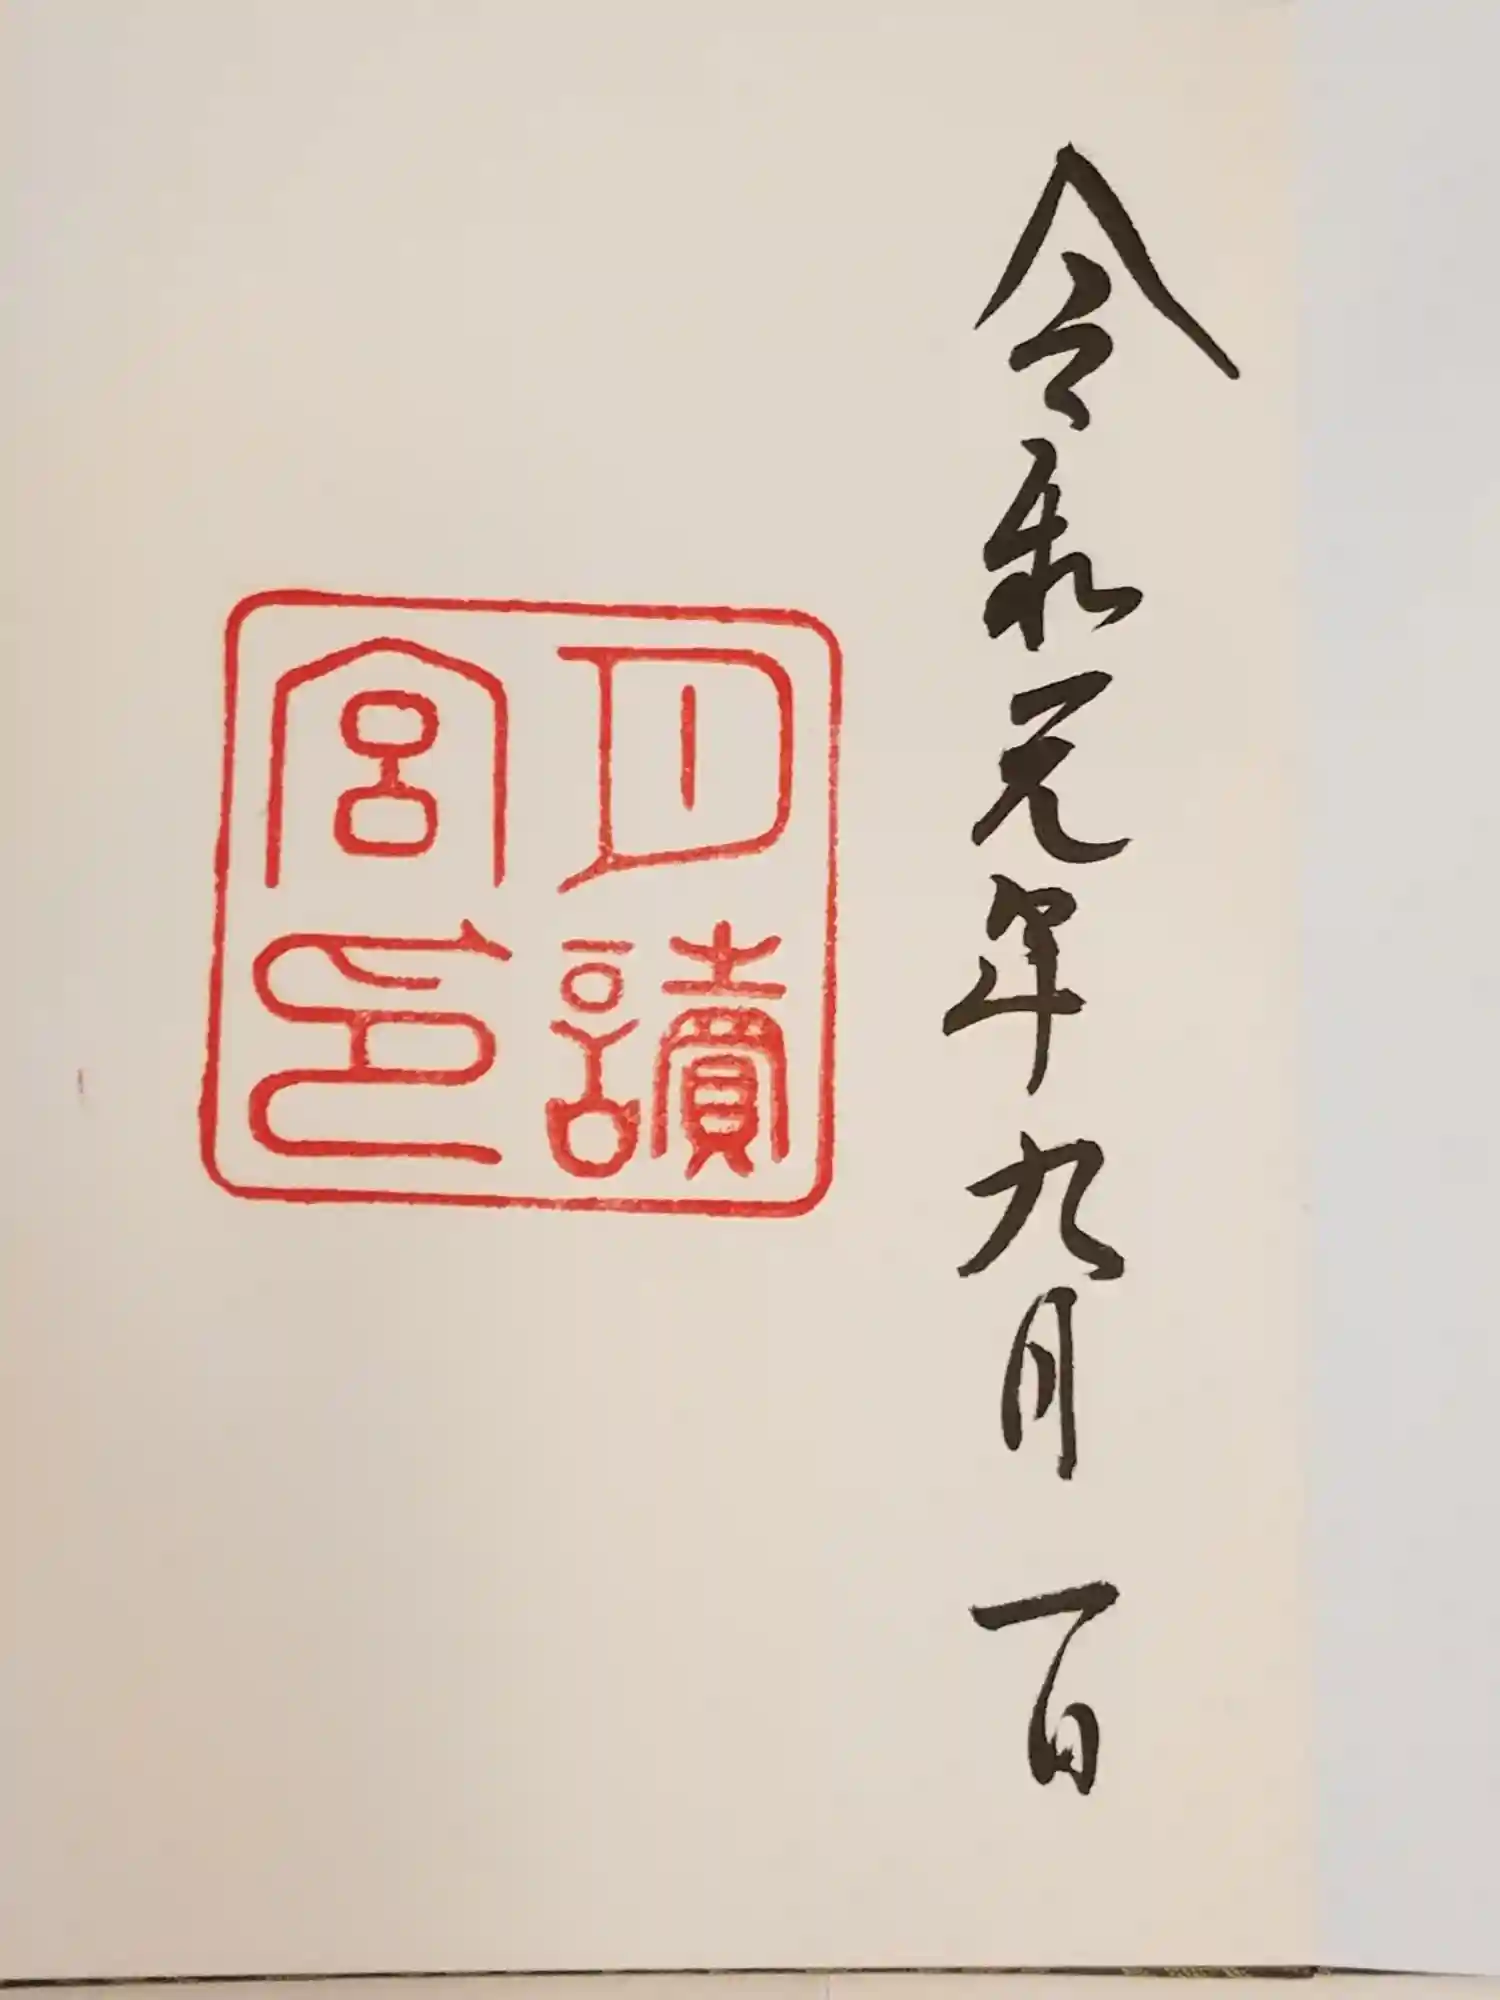 令和元年九月一日
月讀
宮印